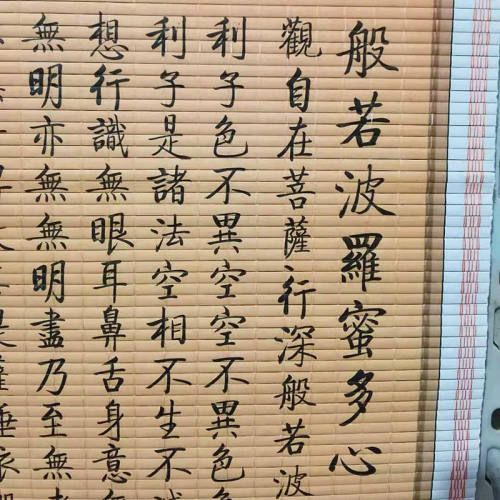 般若波羅蜜多心
觀自在菩薩、行深般若波
利子色不異空空不異色
利子是諸法空相不生不
想行識無眼耳鼻舌身意
無明亦無無明盡乃至無